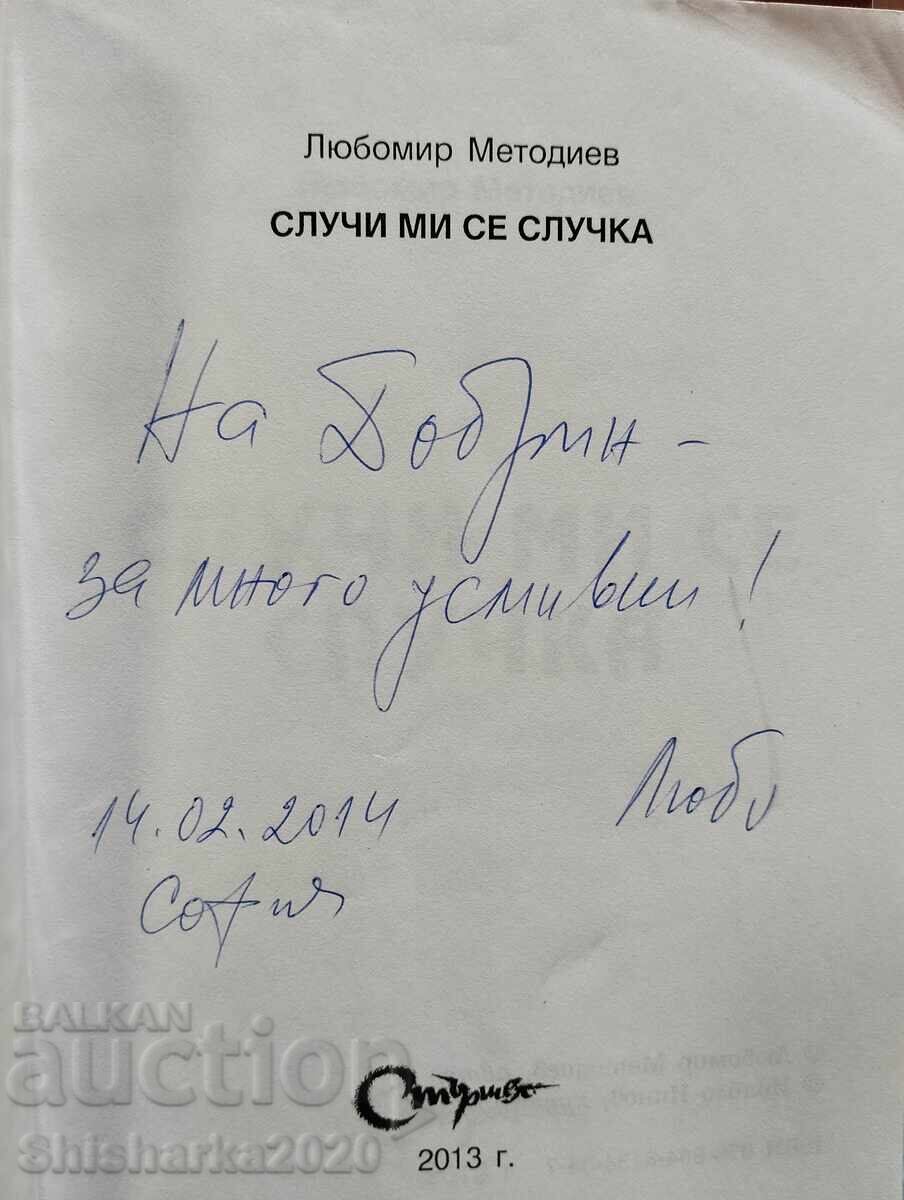 Любомир Методиев
СЛУЧИ МИ СЕ СЛУЧКА
На Добрин -
за много усмивки!
Любо
14.02.2014
София
BALKAN
auction
Shisharka2020
2013 г.